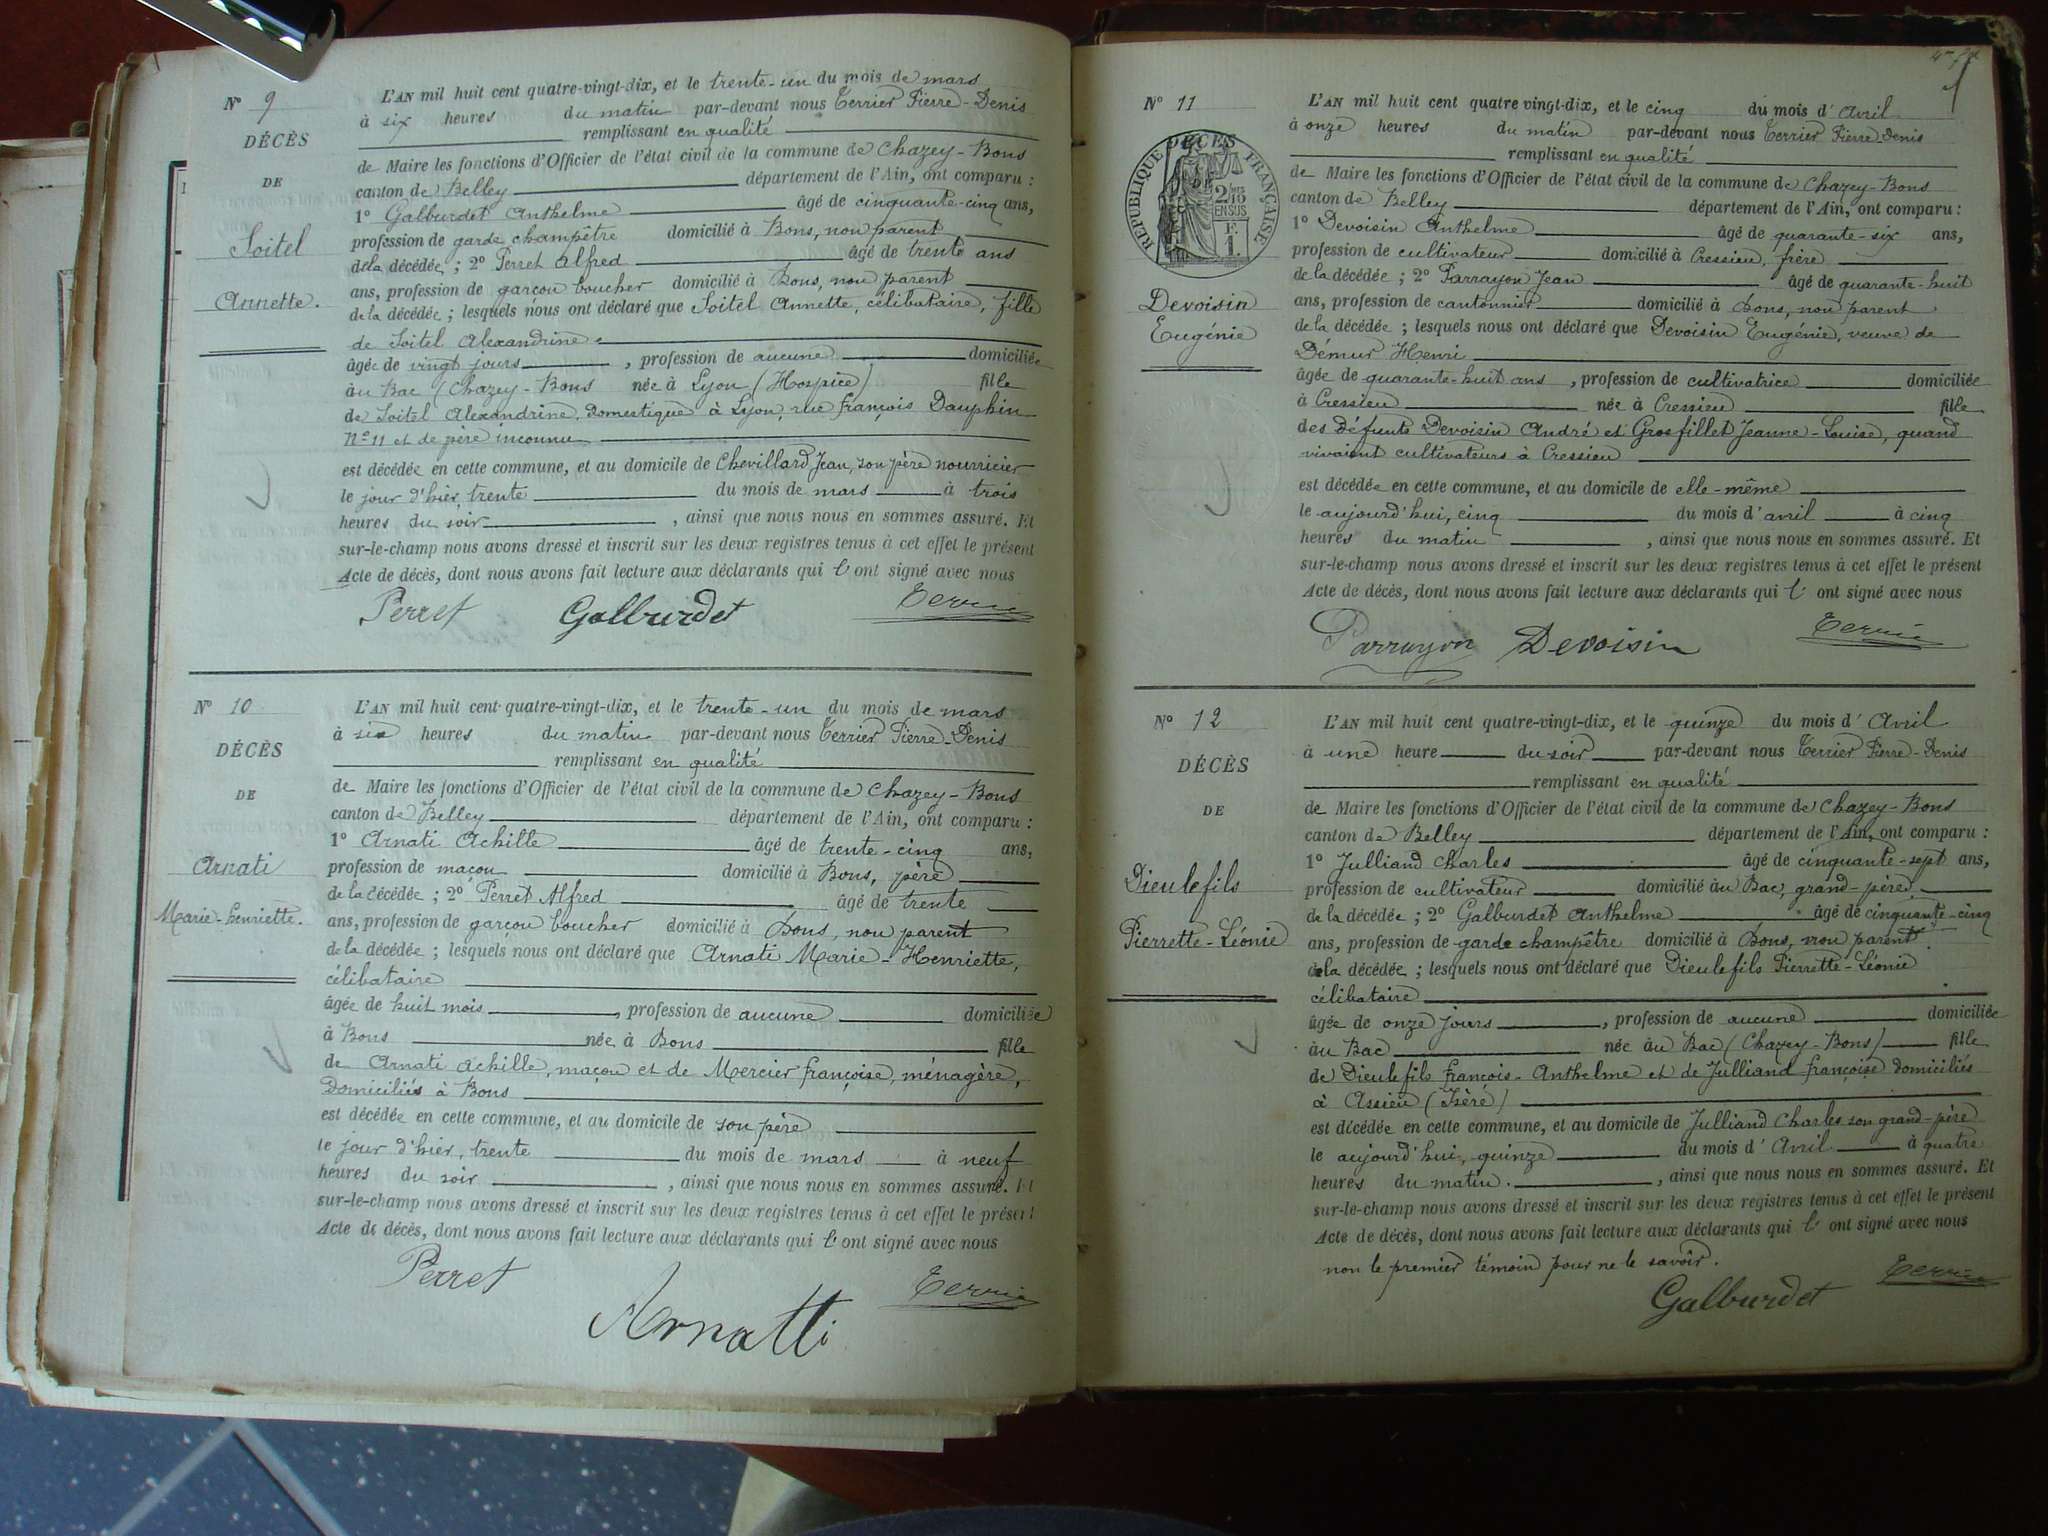 Nº 9
DÉCÈS
DE
Soitel
Annette.
L'AN mil huit cent quatre-vingt-dix, et le trente-un du mois de mars
à six heures du matin par-devant nous Terrier Pierre-Denis
remplissant en qualité
de Maire les fonctions d'Officier de l'état civil de la commune de Chazey-Bons
canton de Belley département de l'Ain, ont comparu :
1º Galburdet Anthelme âgé de cinquante-cinq ans,
profession de garde champêtre domicilié à Bons, non parent
de la décédée ; 2º Perret Alfred âgé de trente ans
ans, profession de garçon boucher domicilié à Bons, non parent
de la décédée ; lesquels nous ont déclaré que Soitel Annette, célibataire, fille
de Soitel Alexandrine
âgée de vingt jours , profession de aucune domiciliée
au Bac (Chazey-Bons née à Lyon (Hospice) fille
de Soitel Alexandrine, Domestique à Lyon, rue François Dauphin
Nº 11 et de père inconnu
est décédée en cette commune, et au domicile de Chevillard Jean, son père nourricier
le jour d'hier, trente du mois de mars à trois
heures du soir , ainsi que nous nous en sommes assuré. Et
sur-le-champ nous avons dressé et inscrit sur les deux registres tenus à cet effet le présent
Acte de décès, dont nous avons fait lecture aux déclarants qui l' ont signé avec nous
Perret Galburdet Terrier
Nº 10
DÉCÈS
DE
Arnati
Marie-Henriette.
L'AN mil huit cent quatre-vingt-dix, et le trente-un du mois de mars
à six heures du matin par-devant nous Terrier Pierre-Denis
remplissant en qualité
de Maire les fonctions d'Officier de l'état civil de la commune de Chazey-Bons
canton de Belley département de l'Ain, ont comparu :
1º Arnati Achille âgé de trente-cinq ans,
profession de maçon domicilié à Bons, père
de la décédée ; 2º Perret Alfred âgé de trente
ans, profession de garçon boucher domicilié à Bons, non parent
de la décédée ; lesquels nous ont déclaré que Arnati Marie-Henriette,
célibataire
âgée de huit mois , profession de aucune domiciliée
à Bons née à Bons fille
de Arnati Achille, maçon et de Mercier Françoise, ménagère,
Domiciliés à Bons
est décédée en cette commune, et au domicile de son père
le jour d'hier, trente du mois de mars à neuf
heures du soir , ainsi que nous nous en sommes assuré. Et
sur-le-champ nous avons dressé et inscrit sur les deux registres tenus à cet effet le présent
Acte de décès, dont nous avons fait lecture aux déclarants qui l' ont signé avec nous
Perret Arnatti Terrier
Nº 11
RÉPUBLIQUE FRANÇAISE
DÉCÈS
DE
2/10 EN SUS
F. 1.
Devoisin
Eugénie
L'AN mil huit cent quatre vingt-dix, et le cinq du mois d' Avril
à onze heures du matin par-devant nous Terrier Pierre Denis
remplissant en qualité
de Maire les fonctions d'Officier de l'état civil de la commune de Chazey-Bons
canton de Belley département de l'Ain, ont comparu :
1º Devoisin Anthelme âgé de quarante-six ans,
profession de cultivateur domicilié à Cressieu, frère
de la décédée ; 2º Parrayon Jean âgé de quarante-huit
ans, profession de cantonnier domicilié à Bons, non parent
de la décédée ; lesquels nous ont déclaré que Devoisin Eugénie, veuve de
Démur Henri
âgée de quarante-huit ans , profession de cultivatrice domiciliée
à Cressieu née à Cressieu fille
des Défunts Devoisin André et Grosfillet Jeanne-Louise, quand
vivaient cultivateurs à Cressieu
est décédée en cette commune, et au domicile de elle-même
le aujourd'hui, cinq du mois d' avril à cinq
heures du matin , ainsi que nous nous en sommes assuré. Et
sur-le-champ nous avons dressé et inscrit sur les deux registres tenus à cet effet le présent
Acte de décès, dont nous avons fait lecture aux déclarants qui l' ont signé avec nous
Parrayon Devoisin Terrier
Nº 12
DÉCÈS
DE
Dieulefils
Pierrette-Léonie
L'AN mil huit cent quatre-vingt-dix, et le quinze du mois d' Avril
à une heure du soir par-devant nous Terrier Pierre-Denis
remplissant en qualité
de Maire les fonctions d'Officier de l'état civil de la commune de Chazey-Bons
canton de Belley département de l'Ain, ont comparu :
1º Julliand Charles âgé de cinquante-sept ans,
profession de cultivateur domicilié au Bac, grand-père
de la décédée ; 2º Galburdet Anthelme âgé de cinquante-cinq
ans, profession de garde champêtre domicilié à Bons, non parent
de la décédée ; lesquels nous ont déclaré que Dieulefils Pierrette-Léonie
célibataire
âgée de onze jours , profession de aucune domiciliée
au Bac née au Bac (Chazey-Bons) fille
de Dieulefils François-Anthelme et de Julliand Françoise domiciliés
à Assieu (Isère)
est décédée en cette commune, et au domicile de Julliand Charles son grand-père
le aujourd'hui, quinze du mois d' Avril à quatre
heures du matin. , ainsi que nous nous en sommes assuré. Et
sur-le-champ nous avons dressé et inscrit sur les deux registres tenus à cet effet le présent
Acte de décès, dont nous avons fait lecture aux déclarants qui l' ont signé avec nous
non le premier témoin pour ne le savoir.
Galburdet Terrier